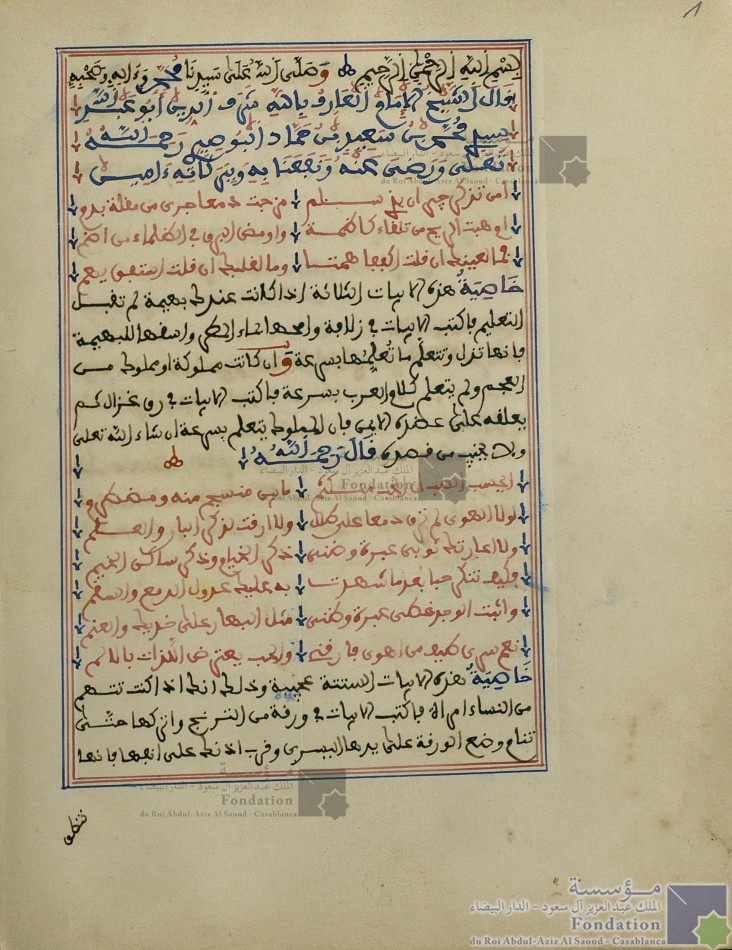 1
بسم الله الرحمن الرحيم وصلى الله على سيدنا محمد وءاله وصحبه
قال الشيخ الإمام العارف بالله شرف الدين أبو عبد الله
سيدي محمد بن سعيد بن حماد البوصيري رحمه الله
تعالى ورضي عنه ونفعنا به وببركاته ءامين
أمن تذكر جيران بذي سلم مزجت دمعا جرى من مقلة بدم
أو هبت الريح من تلقاء كاظمة وأومض البرق في الظلماء من إضم
فما لعينيك إن قلت اكففا همتا وما لقلبك إن قلت استفق يهم
خاصية هذه الابيات الثلاثة اذا كانت عندك بهيمة لم تقبل
التعليم فاكتب الابيات في زلافة وامحها بماء المطر واسقها للبهيمة
فانها تذل وتتعلم ما تُعلمها بسرعة وان كانت مملوكة او مملوك من
العجم ولم يتعلم كلام العرب بسرعة فاكتب الابيات في رق غزال ثم
يعلقه على عضده الايمن فان المملوك يتعلم بسرعة ان شاء الله تعالى
قال رحمه الله
ايحسب الصب أن الحب منكتم ما بين منسجم منه ومضطرم
لولا الهوى لم ترق دمعا على طلل ولا ارقت لذكر البان والعلم
ولا اعارتك ثوبي عبرة وضنى ذكرى الخيام وذكرى ساكن الخيم
فكيف تنكر حبا بعد ما شهدت به عليك عدول الدمع والسقم
واثبت الوجد خطي عبرة وضنى مثل البهار على خديك والعنم
نعم سرى طيف من اهوى فارقني والحب يعترض اللذات بالالم
خاصية هذه الابيات الستة عجيبة وذلك انك اذا كنت تتهم
من النساء امراة فاكتب الابيات في ورقة من الترنج واتركها حتى
تنام وضع الورقة على يدها اليسرى وقرب اذنك على انفها فانها
تنطق
مؤسسة
الملك عبد العزيز آل سعود - الدار البيضاء
Fondation
du Roi Abdul-Aziz Al Saoud - Casablanca